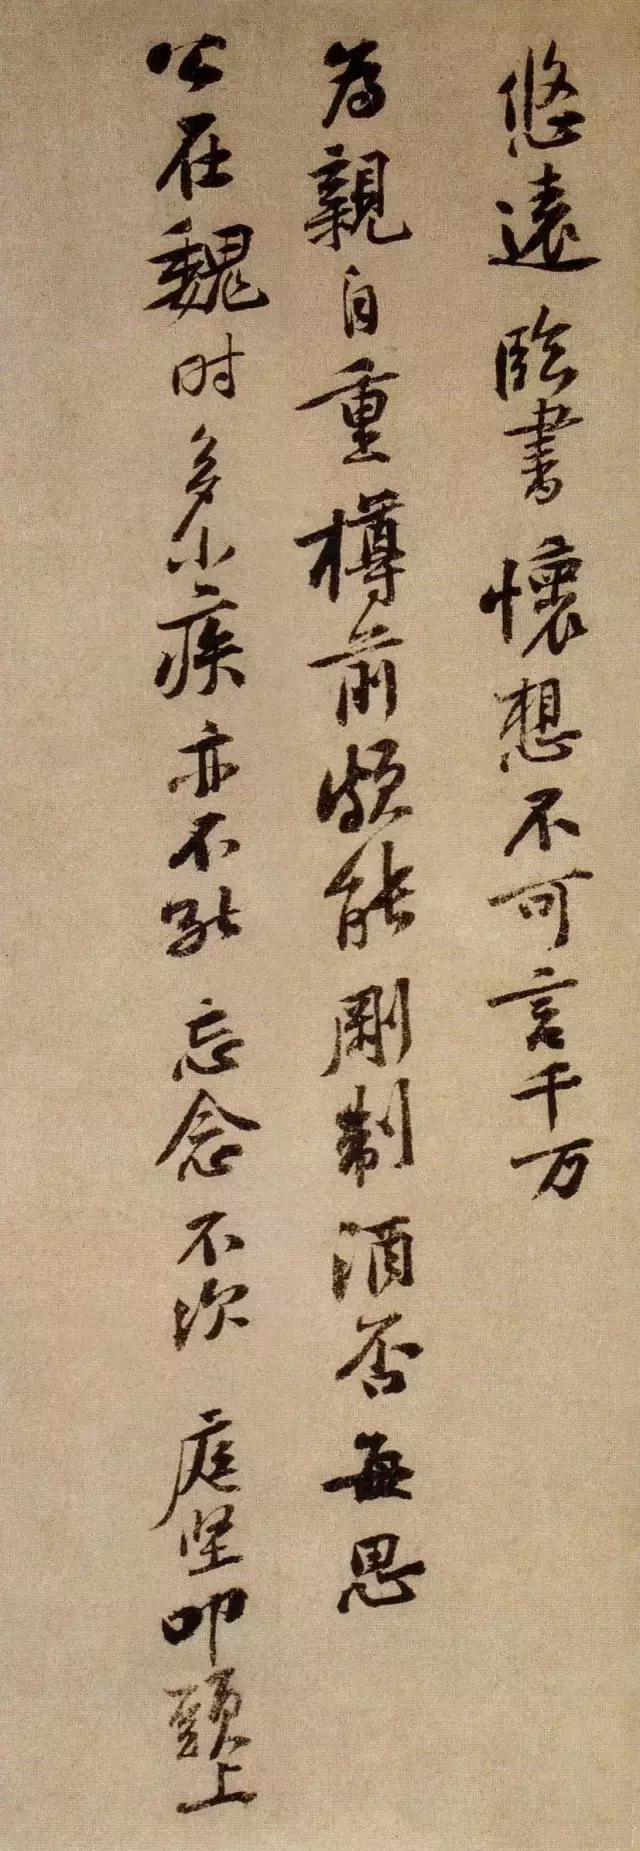 悠遠臨書懷想不可言千万
為親自重樽前頗能剛制酒否每思
公在魏时多小疾亦不能忘念不次庭坚叩頭上